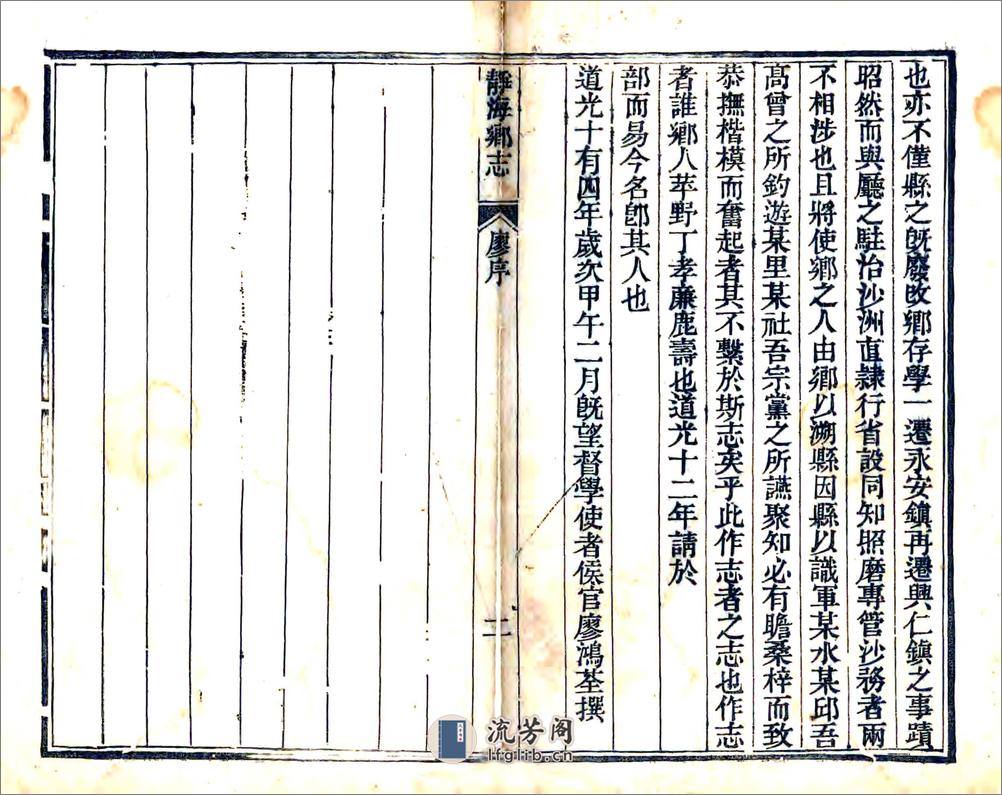 也亦不僅縣之旣廢改鄉存學一遷永安鎭再遷興仁鎭之事蹟
昭然而與廳之駐治沙洲直隷行省設同知照磨專管沙務者兩
不相涉也且將使鄉之人由鄉以溯縣因縣以識軍某水某邱吾
高曾之所釣遊某里某社吾宗黨之所讌聚知必有瞻桑梓而致
恭撫楷模而奮起者其不繫於斯志矣乎此作志者之志也作志
者誰鄉人苹野丁孝廉鹿壽也道光十二年請於
部而易今名卽其人也
道光十有四年歲次甲午二月旣望督學使者侯官廖鴻荃撰
靜海鄉志
廖序
二
流芳阁
lfglib.cn